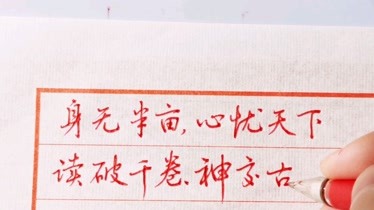 身无半亩,心忧天下
读破千卷、神交古